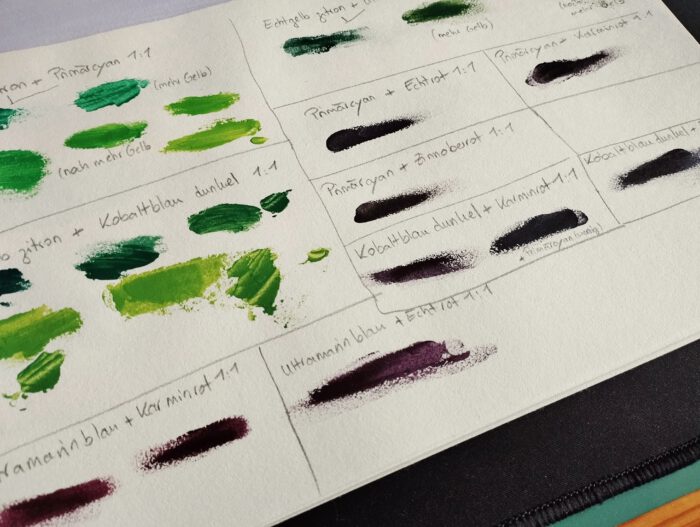 Echtgelb zitron +
(mehr Gelb)
+ Primärcyan 1:1
(mehr Gelb)
(noch mehr Gelb
Primärcyan + Karminrot 1:1
Primärcyan + Echtrot 1:1
Primärcyan + Zinnoberrot 1:1
Kobaltblau dunkel
zitron + Kobaltblau dunkel 1:1
Kobaltblau dunkel + Karminrot 1:1
Ultramarinblau + Echtrot 1:1
ramarinblau + Karminrot 1:1